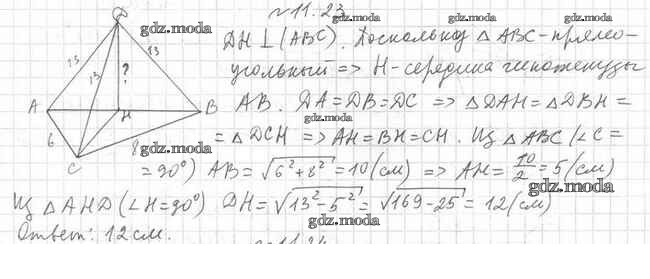 №11.23
gdz.moda
D
gdz.moda
DH ⊥ (ABC). Поскольку △ABC - прямо-
13 13 13 ?
угольный => H - середина гипотенузы
gdz.moda
A H B
AB. DA = DB = DC => △DAH = △DBH =
6 C 8
= △DCH => AH = BH = CH. Из △ABC (∠C =
gdz.moda
= 90°) AB = √6² + 8² = 10 (см) => AH = 10/2 = 5 (см)
gdz.moda
Из △AHD (∠H = 90°) DH = √13² - 5² = √169 - 25 = 12 (см)
gdz.moda
Ответ: 12 см.
gdz.moda
№11.24